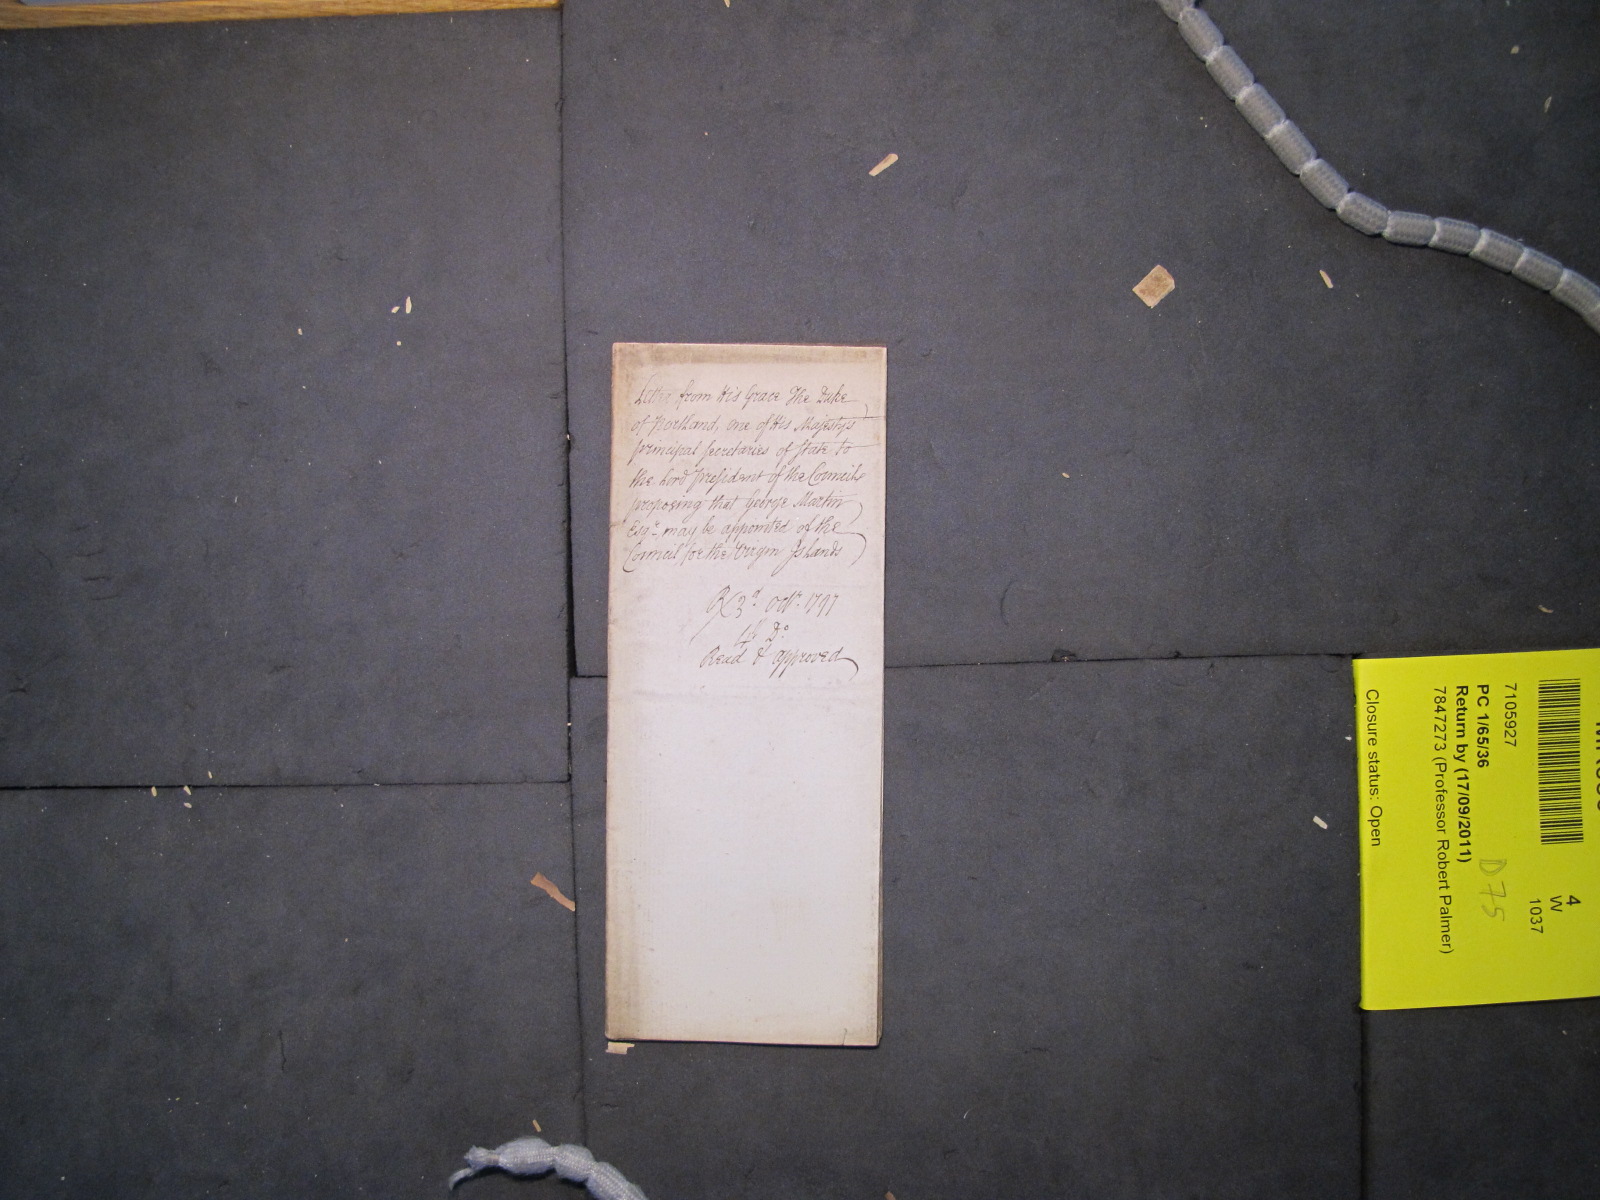 Letter from His Grace The Duke
of Portland, one of His Majesty's
principal Secretaries of State to
the Lord President of the Council
proposing that George Martin
Esqr. may be appointed of the
Council for the Virgin Islands
R 3d. Octr. 1797
4th Do.
Read & approved
4
W
1037
7105927
PC 1/65/36
D 75
Return by (17/09/2011)
7847273 (Professor Robert Palmer)
Closure status: Open